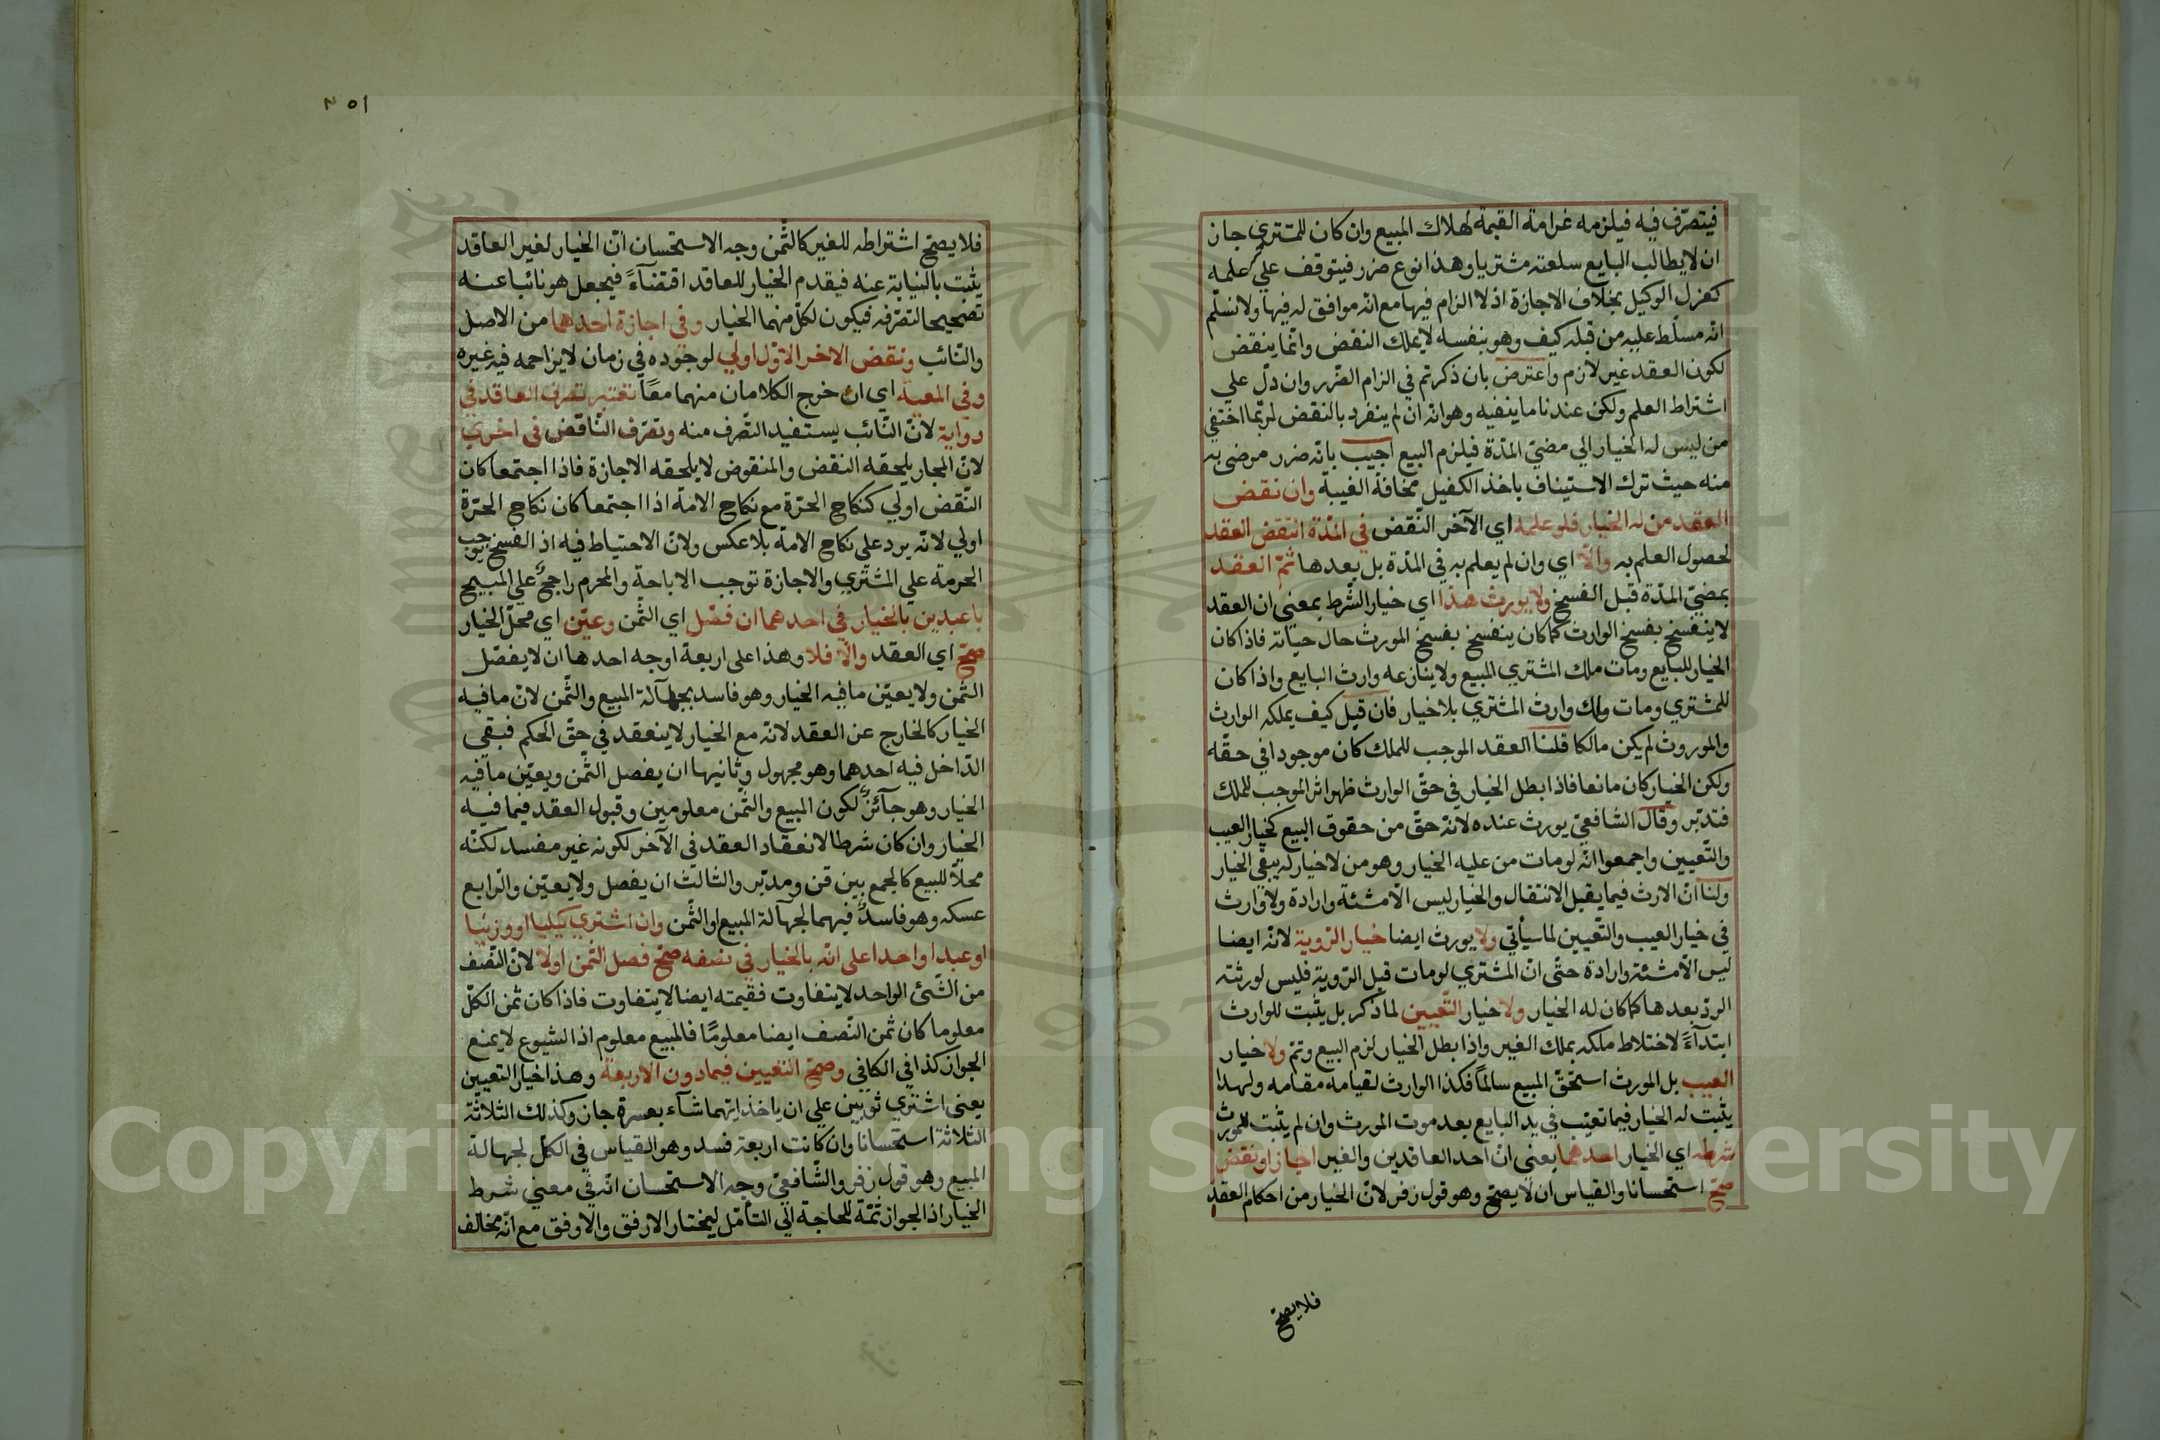 فيتصرّف فيه فيلزمه غرامة القيمة لهلاك المبيع وان كان للمشتري جاز
ان لا يطالب البايع سلعته مشتريا وهذا نوع ضرر فيتوقف علي علمه
كعزل الوكيل بخلاف الاجازة اذ لا الزام فيها مع انّه موافق له فيها ولا نسلّم
انّه مسلّط عليه من قبله كيف وهو بنفسه لا يملك النقض وانّما ينقض
لكون العقد غير لازم واعترض بان ذكرتم في الزام الضّرر وان دلّ علي
اشتراط العلم ولكن عندنا ما ينفيه وهو انّه ان لم ينفرد بالنقض لربّما اختفي
من ليس له الخيار الي مضيّ المدّة فيلزم البيع اجيب بانّه ضرر مرضي به
منه حيث ترك الاستيناف باخذ الكفيل مخافة الغيبة وان نقض
العقد من له الخيار فلو علمه اي الآخر النّقض في المدّة انتقض العقد
لحصول العلم به والّا اي وان لم يعلم به في المدّة بل بعدها تمّ العقد
بمضيّ المدّة قبل الفسخ ولا يورث هذا اي خيار الشّرط بمعني ان العقد
لا ينفسخ بفسخ الوارث كما كان ينفسخ بفسخ المورث حال حياته فاذا كان
الخيار للبايع ومات ملك المشتري المبيع ولا ينازعه وارث البايع واذا كان
للمشتري ومات ملك وارث المشتري بلا خيار فان قيل كيف يملكه الوارث
والموروث لم يكن مالكا قلنا العقد الموجب للملك كان موجودا في حقّه
ولكن الخيار كان مانعا فاذا بطل الخيار في حقّ الوارث ظهر اثر الموجب للملك
فتدبّر وقال الشافعيّ يورث عنده لانّه حقّ من حقوق البيع كخيار العيب
والتّعيين واجمعوا انّه لو مات من عليه الخيار وهو من لا خيار له يبقي الخيار
ولنا انّ الارث فيما يقبل الانتقال والخيار ليس الّا مشئة وارادة ولا وارث
في خيار العيب والتّعيين لما سيأتي ولا يورث ايضا خيار الرّوية لانّه ايضا
ليس الّا مشئة وارادة حتّي انّ المشتري لو مات قبل الرّوية فليس لورثته
الردّ بعدها كما كان له الخيار ولا خيار التّعيين لما ذكر بل يثبت للوارث
ابتدآءً لاختلاط ملكه بملك الغير واذا بطل الخيار لزم البيع وتمّ ولا خيار
العيب بل المورث استحقّ المبيع سالمًا فكذا الوارث لقيامه مقامه ولهذا
يثبت له الخيار فيما تعيّب في يد البايع بعد موت المورث وان لم يثبت للمورث
شرطه اي الخيار احدهما يعني انّ احد العاقدين والغير اجاز او نقض
صحّ استحسانا والقياس ان لا يصحّ وهو قول زفر لانّ الخيار من احكام العقد
فلا يصحّ
فلا يصحّ اشتراطه للغير كالثّمن وجه الاستحسان انّ الخيار لغير العاقد
يثبت بالنيابة عنه فيقدم الخيار للعاقد اقتضآءً فيجعل هو نائبا عنه
تصحيحا لتصرّفه فيكون لكلّ منهما الخيار وفي اجازة احدهما من الاصل
والنّائب ونقض الاخر الاوّل اولي لوجوده في زمان لا يزاحمه فيه غيره
وفي المعيّة اي ان خرج الكلامان منهما معًا تعتبر تصرف العاقد في
رواية لانّ النّائب يستفيد التّصرف منه وتصرّف النّاقض في اخري
لانّ المجاز يلحقه النقض والمنقوض لا يلحقه الاجازة فاذا اجتمعا كان
النّقض اولي كنكاح الحرّة مع نكاح الامة اذا اجتمعا كان نكاح الحرّة
اولي لانّه يرد علي نكاح الامة بلا عكس ولانّ الاحتياط فيه اذ الفسخ يوجب
الحرمة علي المشتري والاجازة توجب الاباحة والمحرم راجح علي المبيح
باع عبدين بالخيار في احدهما ان فصّل اي الثّمن وعيّن اي محلّ الخيار
صحّ اي العقد والّا فلا وهذا علي اربعة اوجه احدها ان لا يفصّل
الثّمن ولا يعيّن ما فيه الخيار وهو فاسد بجهالة المبيع والثّمن لانّ ما فيه
الخيار كالخارج عن العقد لانّه مع الخيار لا ينعقد في حقّ الحكم فبقي
الدّاخل فيه احدهما وهو مجهول وثانيها ان يفصل الثّمن ويعيّن ما فيه
الخيار وهو جآئز لكون المبيع والثّمن معلومين وقبول العقد فيما فيه
الخيار وان كان شرطا لانعقاد العقد في الآخر لكونه غير مفسد لكنّه
محلّا للبيع كالجمع بين قن ومدبّر والثالث ان يفصل ولا يعيّن والرّابع
عسكه وهو فاسدٌ فيهما لجهالة المبيع او الثّمن وان اشتري كيليا او وزنيا
او عبدا واحدا علي انّه بالخيار في نصفه صحّ فصل الثّمن اولا لانّ النّصف
من الشّئ الواحد لا يتفاوت فقيمته ايضا لا يتفاوت فاذا كان ثمن الكلّ
معلوما كان ثمن النّصف ايضا معلومًا فالمبيع معلوم اذ الشيوع لا يمنع
الجواز كذا في الكافي وصحّ التّعيين فيما دون الاربعة وهذا خيار التعيين
يعني اشتري ثوبين علي ان ياخذ ايّهما شآء بعشرة جاز وكذلك الثلاثة
الثلاثة استحسانا وان كانت اربعة فسد وهو القياس في الكلّ لجهالة
المبيع وهو قول زفر والشّافعيّ وجه الاستحسان انّه في معني شرط
الخيار اذ الجواز ثمّة للحاجة الي التأمّل ليختار الارفق والاوفق مع انّه مخالف